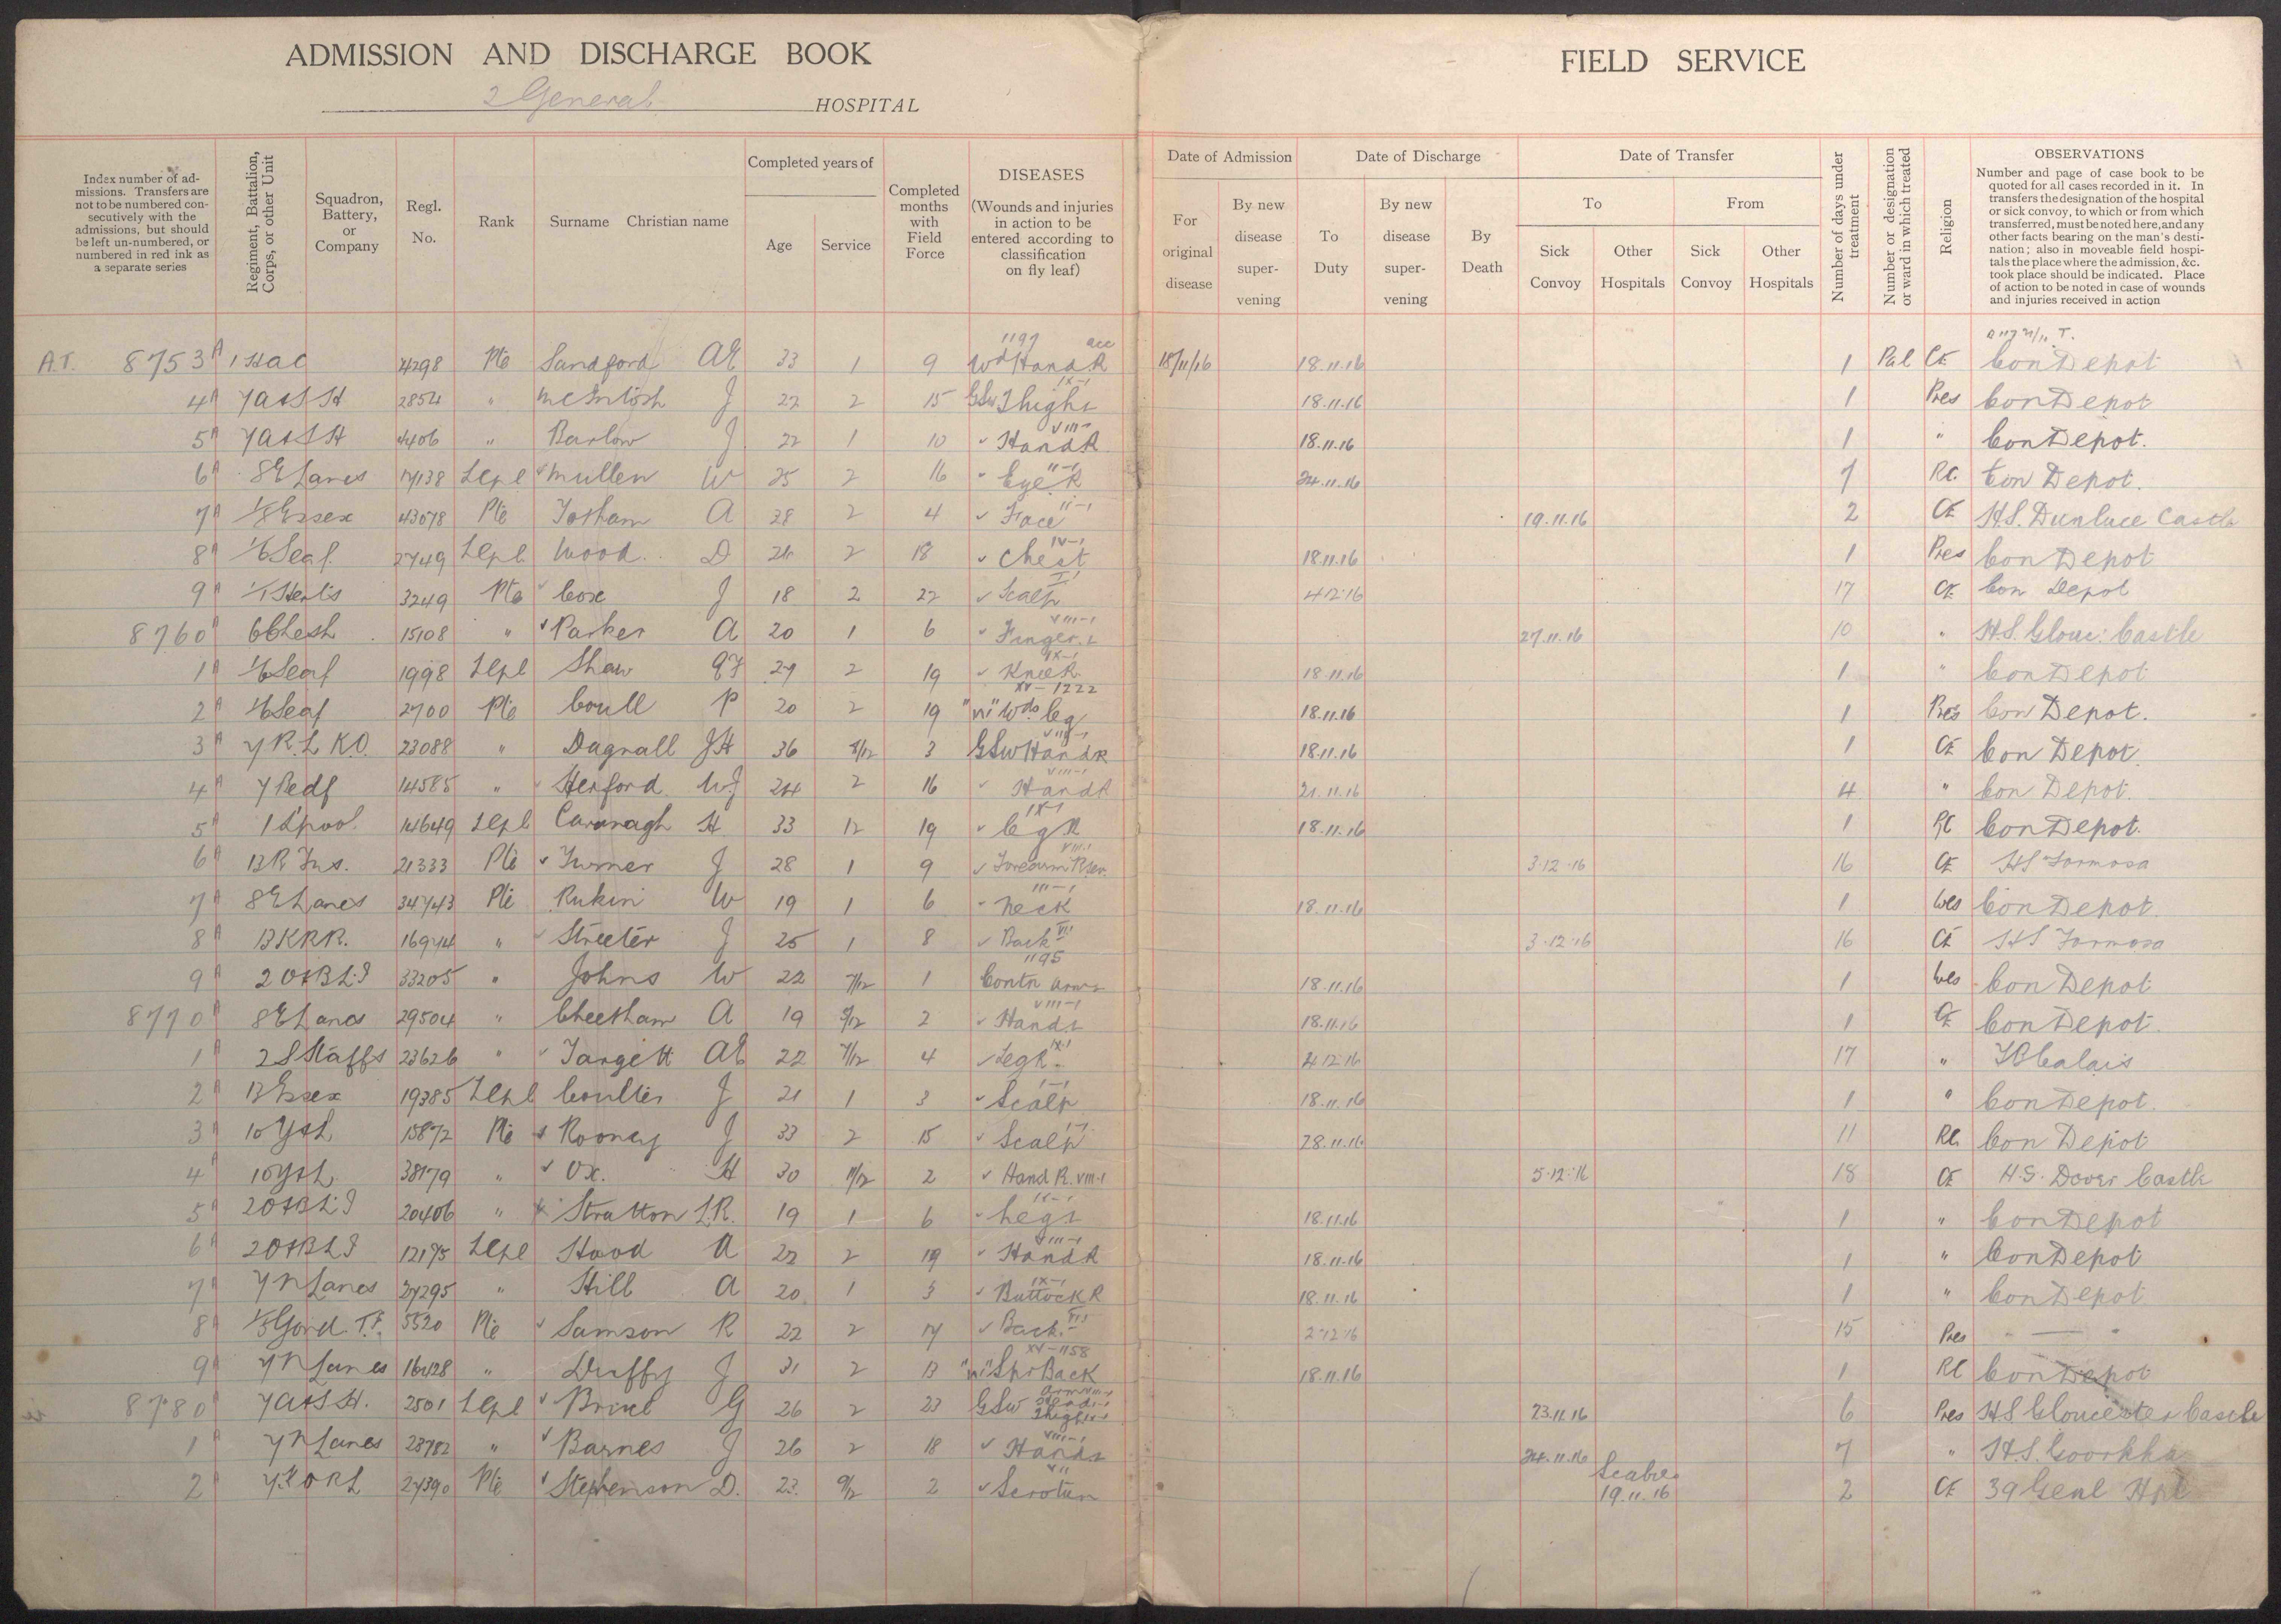 ADMISSION AND DISCHARGE BOOK
2 General HOSPITAL
FIELD SERVICE
Index number of admissions. Transfers are not to be numbered consecutively with the admissions, but should be left un-numbered, or numbered in red ink as a separate series
Regiment, Battalion, Corps, or other Unit
Squadron, Battery, or Company
Regl. No.
Rank
Surname Christian name
Completed years of
Age
Service
Completed months with Field Force
DISEASES
(Wounds and injuries in action to be entered according to classification on fly leaf)
Date of Admission
For original disease
By new disease supervening
Date of Discharge
To Duty
By new disease supervening
By Death
Date of Transfer
To
Sick Convoy
Other Hospitals
From
Sick Convoy
Other Hospitals
Number of days under treatment
Number or designation or ward in which treated
Religion
OBSERVATIONS
Number and page of case book to be quoted for all cases recorded in it. In transfers the designation of the hospital or sick convoy, to which or from which transferred, must be noted here, and any other facts bearing on the man's destination; also in moveable field hospitals the place where the admission, &c. took place should be indicated. Place of action to be noted in case of wounds and injuries received in action
A.T. 8753A 1 HAC 4298 Pte Sandford AE 33 1 9 1197 acc Wd Hand R 18/11/16 18.11.16 1 Pal CE Con Depot
4A 7 A&SH 2854 " McIntosh J 22 2 15 GSW Thighs IX-1 18.11.16 1 Pres Con Depot
5A 7 A&SH 4406 " Barlow J 22 1 10 " Hand R VIII-1 18.11.16 1 " Con Depot.
6A 8 E Lancs 17138 LCpl Mullen W 25 2 16 " Eye R II-1 24.11.16 7 RC. Con Depot.
7A 1/8 Essex 43078 Pte Jotham A 28 2 4 " Face II-1 19.11.16 2 CE H.S. Dunluce Castle
8A 1/6 Seaf. 2749 LCpl Wood D 24 2 18 " Chest IV-1 18.11.16 1 Pres Con Depot
9A 1/1 Herts 3249 Pte Cox J 18 2 22 " Scalp I-1 4.12.16 17 CE Con Depot
8760A 6 Chesh 15108 " Parker A 20 1 6 " Fingers VIII-1 27.11.16 10 " H.S. Glouc: Castle
1A 1/6 Seaf 1998 LCpl Shaw 27 2 19 " Knee R IX-1 18.11.16 1 " Con Depot
2A 1/6 Seaf 2700 Pte Coull P 20 2 19 XV-1222 "ni" Wds leg 18.11.16 1 Pres Con Depot.
3A 7 R.L K.O. 23088 " Dagnall JH 36 8/12 3 GSW Hand R VIII-1 18.11.16 1 CE Con Depot.
4A 7 Bedf 14585 " Herford WJ 24 2 16 " Hand R VIII-1 21.11.16 4 " Con Depot.
5A 1 L'pool. 14649 LCpl Cavanagh H 33 12 19 " leg R IX-1 18.11.16 1 RC Con Depot.
6A 13 R Fus. 21333 Pte Turner J 28 1 9 " Forearm R sev. VIII-1 3.12.16 16 CE HS Formosa
7A 8 E Lancs 34743 Pte Rukin W 19 1 6 " Neck III-1 18.11.16 1 Wes Con Depot.
8A 13 KRR. 16974 " Streeter J 25 1 8 " Back VI-1 3.12.16 16 CE HS Formosa
9A 2 O&BLI 33205 " Johns W 22 7/12 1 1195 Contn arms 18.11.16 1 Wes Con Depot
8770A 8 E Lancs 29504 " Cheetham A 19 8/12 2 " Hands VIII-1 18.11.16 1 CE Con Depot.
1A 2 S Staffs 23626 " Targett AE 22 7/12 4 " Leg R. IX-1 4.12.16 17 " Calais
2A 13 Essex 19385 LCpl Coulter J 21 1 3 " Scalp I-1 18.11.16 1 " Con Depot.
3A 10 Y&L 15872 Pte Rooney J 33 2 15 " Scalp I-1 28.11.16 11 RC. Con Depot
4A 10 Y&L 38179 " Ox. H 30 11/12 2 " Hand R. VIII-1 5.12.16 18 CE H.S. Dover Castle
5A 2 O&BLI 20406 " Stratton L.R. 19 1 6 " Legs IX-1 18.11.16 1 " Con Depot
6A 2 O&BLI 12195 LCpl Hood A 22 2 19 " Hand R VIII-1 18.11.16 1 " Con Depot
7A 7 N Lancs 27295 " Hill A 20 1 3 " Buttock R IX-1 18.11.16 1 " Con Depot
8A 1/5 Gord. T.F. 5520 Pte Samson R 22 2 17 " Back. VI-1 2.12.16 15 Pres " — "
9A 7 N Lancs 16428 " Duffy J 31 2 13 XV-1158 "ni" Spr Back 18.11.16 1 RC Con Depot
8780A 7 A&SH. 2501 LCpl Brixel G 26 2 23 GSW Arm VIII-1 Head I-1 Thigh IX-1 23.11.16 6 Pres H.S. Gloucester Castle
1A 7 N Lancs 23782 " Barnes J 26 2 18 " Hands VIII-1 24.11.16 7 " H.S. Goorkha
2A 7 K O R L 27390 Pte Stephenson D. 23 9/12 2 " Scrotum VII Scabies 19.11.16 2 CE 39 Genl Hpl